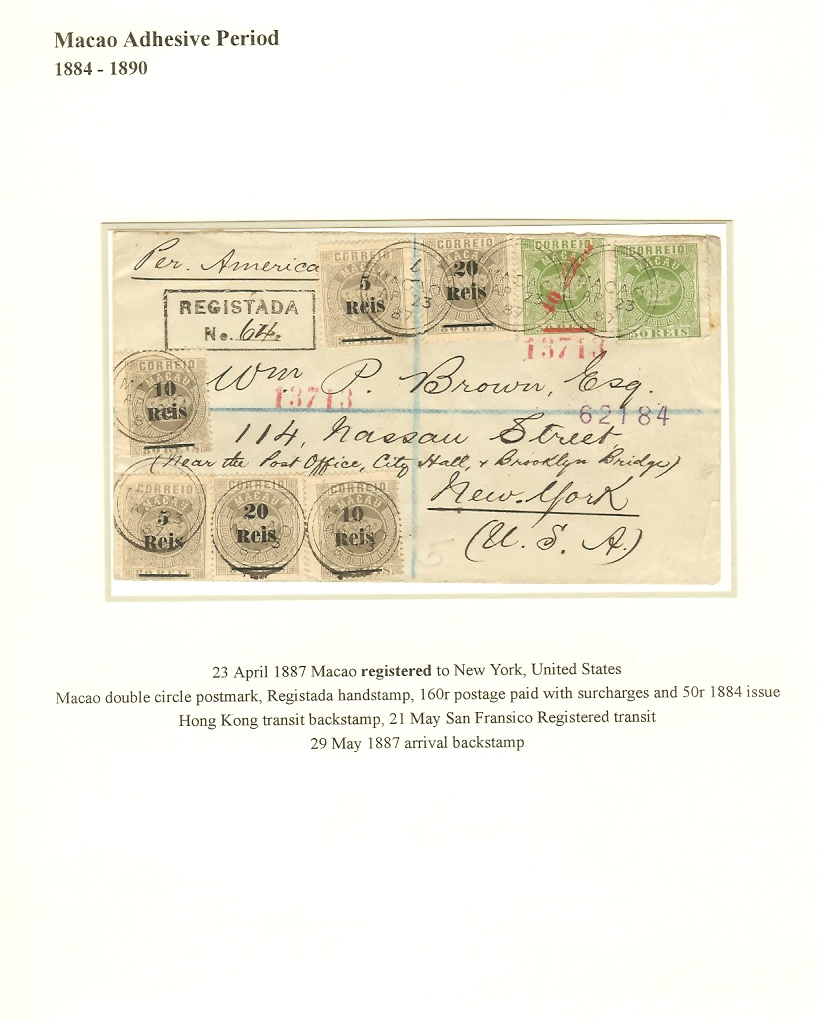 Macao Adhesive Period
1884 - 1890
Per. America
REGISTADA
No. 64.
CORREIO
MACAU
5
Reis
CORREIO
MACAU
20
Reis
CORREIO
MACAU
40
CORREIO
MACAU
50 REIS
MACAO
23
87
13713
CORREIO
10
Reis
Wm P. Brown, Esq.
13713
62184
114, Nassau Street
(Near the Post Office, City Hall, & Brooklyn Bridge)
New. York
(U. S. A.)
CORREIO
MACAU
5
Reis
CORREIO
MACAU
20
Reis
CORREIO
MACAU
10
Reis
23 April 1887 Macao registered to New York, United States
Macao double circle postmark, Registada handstamp, 160r postage paid with surcharges and 50r 1884 issue
Hong Kong transit backstamp, 21 May San Fransico Registered transit
29 May 1887 arrival backstamp